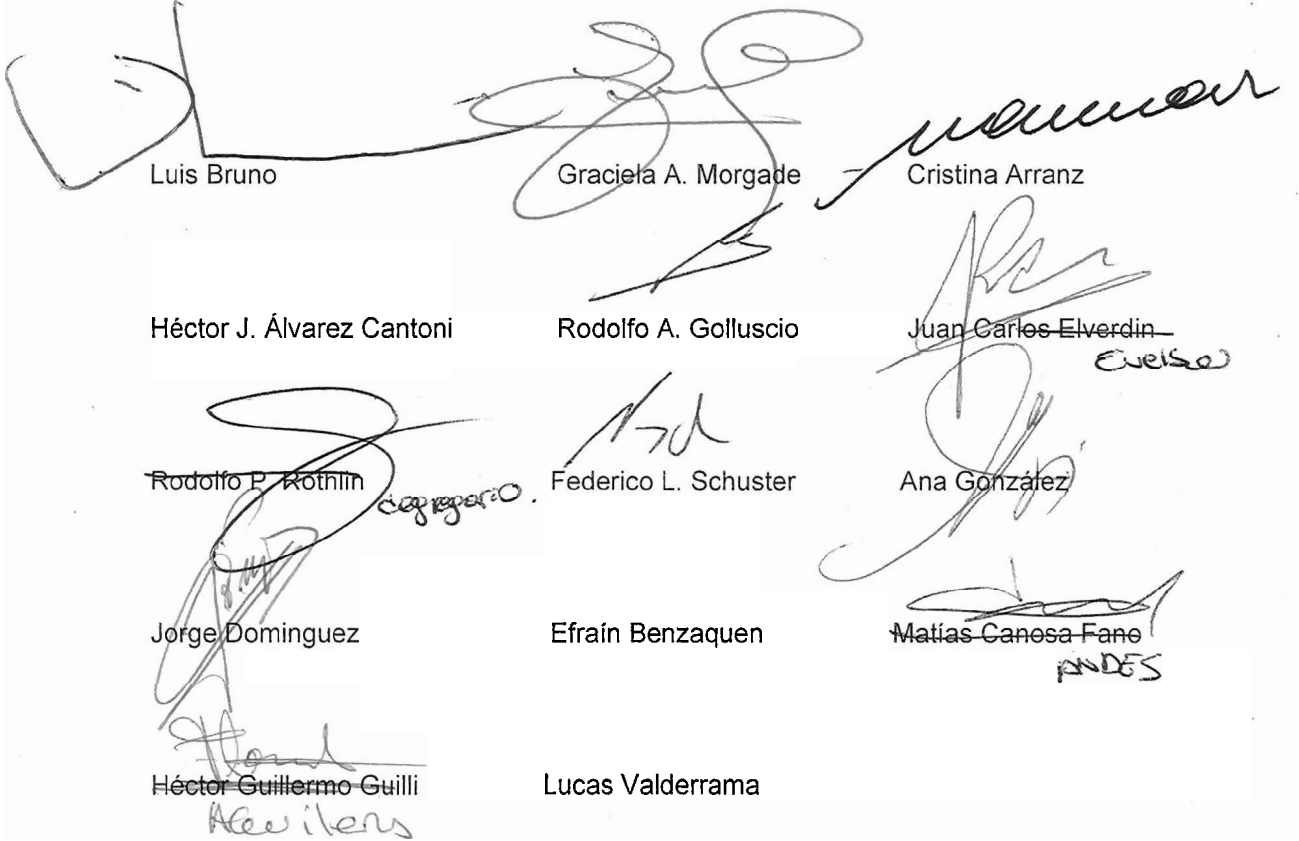 Luis Bruno
Graciela A. Morgade
Cristina Arranz
Héctor J. Álvarez Cantoni
Rodolfo A. Golluscio
Juan Carlos Elverdin
Rodolfo P. Rothlin
Federico L. Schuster
Ana González
Jorge Dominguez
Efraín Benzaquen
Matías Canosa Fano
ANDES
Héctor Guillermo Guilli
Lucas Valderrama